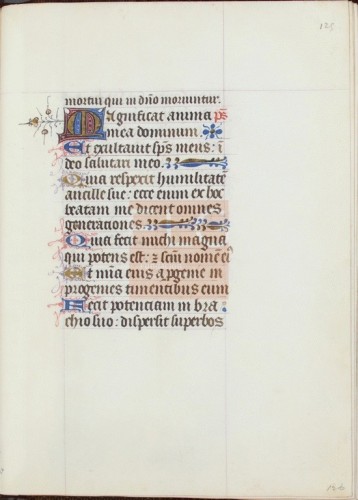 125
mortui qui in dño moriuntur.
Magnificat anima ps̃
mea dominum.
Et exultauit sp̃s meus: ĩ
deo salutari meo.
Quia respexit humilitatẽ
ancille sue: ecce enim ex hoc
beatam me dicent omnes
generationes.
Quia fecit michi magna
qui potens est: ⁊ scũm nomẽ eiꝰ
Et mĩa eius a ꝓgenie in
progenies timentibus eum
Fecit potenciam in bra
chio suo: dispersit superbos